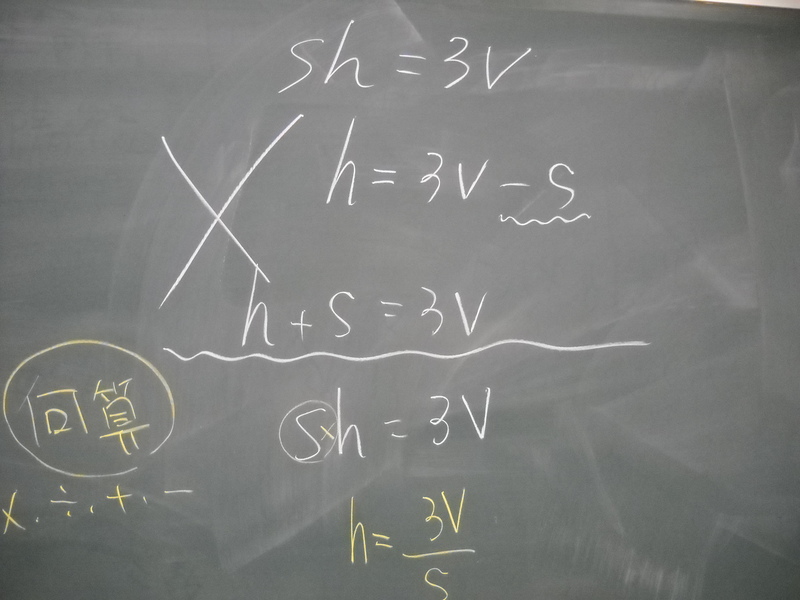 Sh = 3V
h = 3V - S
h + S = 3V
何算
×.÷.+.-
S×h = 3V
h = 3V/S